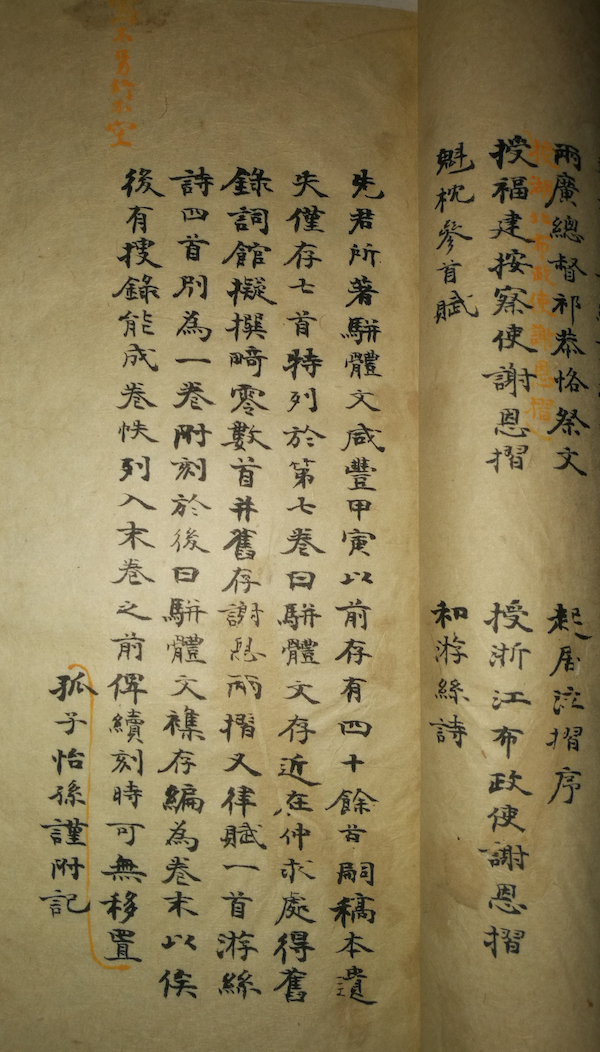 兩廣總督祁恭恪祭文　起居注摺序
授福建按察使謝恩摺　授浙江布政使謝恩摺
魁枕參首賦　和游絲詩
先君所著駢體文咸豐甲寅以前存有四十餘首嗣稿本遺
失僅存七首特列於第七卷曰駢體文存近在仲求處得舊
錄詞館擬撰畸零數首并舊存謝恩兩摺又律賦一首游絲
詩四首別為一卷附刻於後曰駢體文襍存編為卷末以俟
後有搜錄能成卷帙列入末卷之前俾續刻時可無移置
孤子怡孫謹附記